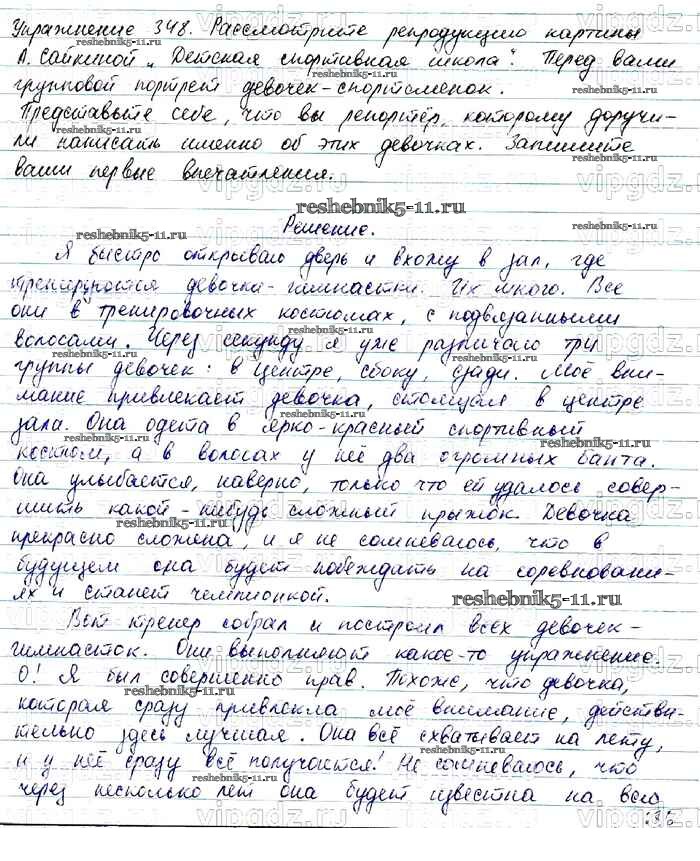 Упражнение 348. Рассмотрите репродукцию картины
А. Сайкиной „Детская спортивная школа". Перед вами
групповой портрет девочек-спортсменок.
Представьте себе, что вы репортёр, которому доручи-
ли написать именно об этих девочках. Запишите
ваши первые впечатления.
Решение.
Я быстро открываю дверь и вхожу в зал, где
тренируются девочки-гимнастки. Их много. Все
они в тренировочных костюмах, с подвязанными
волосами. Через секунду я уже различаю три
группы девочек: в центре, сбоку, сзади. Моё вни-
мание привлекает девочка, стоящая в центре
зала. Она одета в ярко-красный спортивный
костюм, а в волосах у неё два огромных банта.
Она улыбается, наверно, только что ей удалось совер-
шить какой-нибудь сложный прыжок. Девочка
прекрасно сложена, и я не сомневаюсь, что в
будущем она будет побеждать на соревновани-
ях и станет чемпионкой.
Вот тренер собрал и построил всех девочек-
гимнасток. Они выполняют какое-то упражнение.
О! Я был совершенно прав. Похоже, что девочка,
которая сразу привлекла моё внимание, действи-
тельно здесь лучшая. Она всё схватывает на лету,
и у неё сразу всё получается! Не сомневаюсь, что
через несколько лет она будет известна на всю
reshebnik5-11.ru
vipgdz.ru